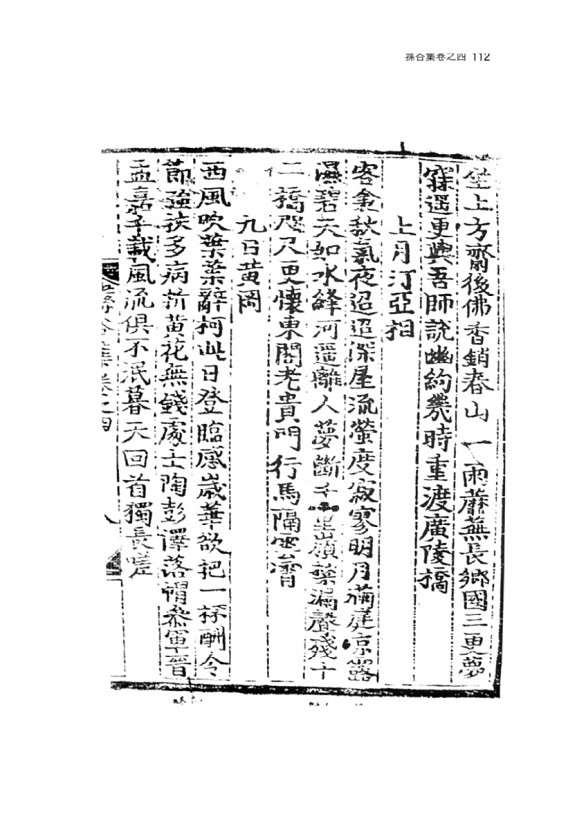 蓀谷集卷之四 112
坐上方齋後佛香銷春山一雨蘼蕪長鄉國三更夢
寐遥更與吾師說幽約幾時重渡廣陵橋
上月汀亞相
客衾秋氣夜迢迢深屋流螢度寂寥明月滿庭凉露
濕碧天如水絳河遥離人夢斷千里嶺禁漏聲殘十
二橋咫尺更懷東閣老貴門行馬隔雲霄
九日黃岡
西風吹葉葉辭柯此日登臨感歲華欲把一杯酬令
節強扶多病折黃花無錢處士陶彭澤落帽參軍晋
孟嘉千載風流俱不泯暮天回首獨長嗟
蓀谷集卷之四